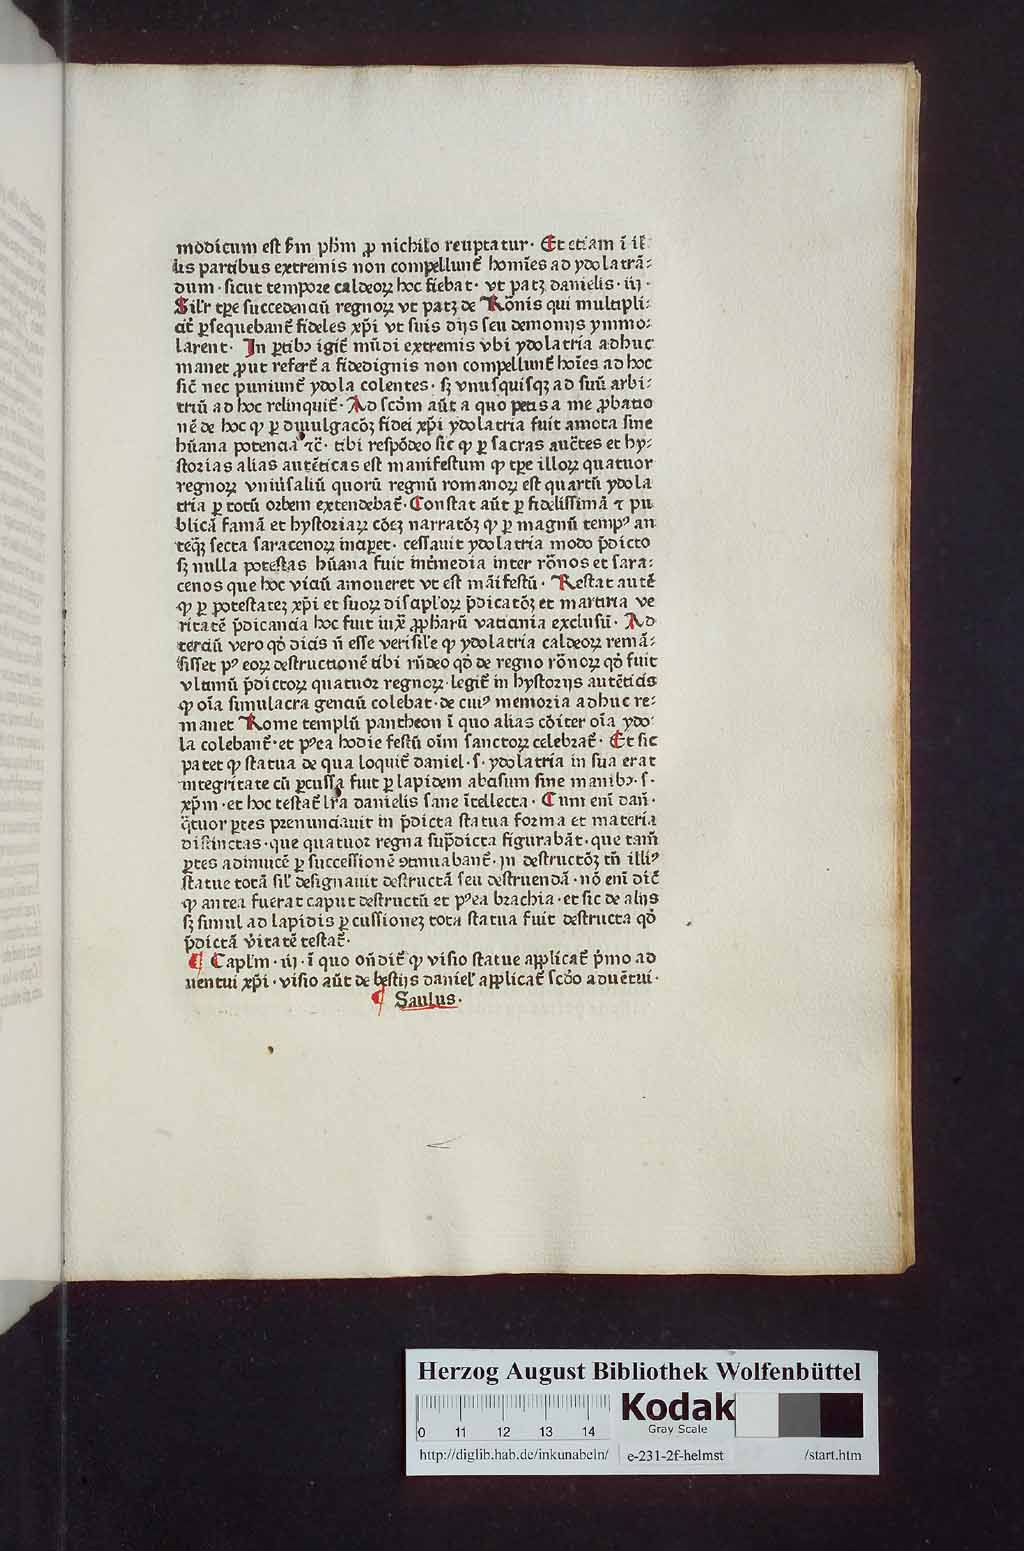 modicum est ẜm pħm ꝓ nichilo reuptatur· Et etiam ī il
lis partibus extremis non compellunt᷑ homīes ad ydolatrā⸗
dum· sicut tempore caldeoꝝ hoc fiebat· vt patꝫ danielis· iij·
Silr̄ tꝑe succedenciū regnoꝝ vt patꝫ de Rōnis qui multipli⸗
cit᷑ ꝑsequebant᷑ fideles xp̄i vt suis dijs seu demonijs ymmo⸗
larent· In ꝑtibꝫ igit᷑ mūdi extremis vbi ydolatria adhuc
manet ꝓut refert᷑ a fidedignis non compellunt᷑ hoīes ad hoc
sic̄ nec puniunt᷑ ydola colentes· sꝫ vnusquisqꝫ ad suū arbi⸗
triū ad hoc relinquit᷑· Ad scd̄m aūt a quo petis a me ꝓbatio
nē de hoc ꝙ ꝑ diuulgacōꝫ fidei xp̄i ydolatria fuit amota sine
hūana potencia ⁊c̄· tibi respōdeo sic ꝙ ꝑ sacras auc̄tes et hy⸗
storias alias autēticas est manifestum ꝙ tꝑe illoꝝ quatuor
regnoꝝ vniu̓saliū quorū regnū romanoꝝ est quartū ydola
tria ꝑ totū orbem extendebat᷑· Constat aūt ꝑ fidelissimā ⁊ pu
blicā famā et hystoriaꝝ cōeꝫ narratōꝫ ꝙ ꝑ magnū tempꝰ an
teqꝫ̄ secta saracenoꝝ inciꝑet· cessauit ydolatria modo p̄dicto
sꝫ nulla potestas hūana fuit int̓media inter rōnos et sara⸗
cenos que hoc viciū amoueret vt est māifestū· Restat autē
ꝙ ꝑ potestateꝫ xp̄i et suoꝝ discipl̓oꝝ p̄dicatōꝫ et martiria ve
ritatē p̄dicancia hoc fuit iuxͣ ꝓpħarū vaticinia exclusū· Ad
terciū vero qd̓ dicis n̄ esse verisile ꝙ ydolatria caldeoꝝ remā⸗
sisset pꝰ eoꝝ destructionē tibi rn̄deo qd̓ de regno rōnoꝝ qd̓ fuit
vltimū p̄dictoꝝ quatuor regnoꝝ· legit᷑ in hystorijs autēticis
ꝙ oīa simulacra genciū colebat· de cuiꝰ memoria adhuc re⸗
manet Rome templū pantheon ī quo alias cōiter oīa ydo⸗
la colebant᷑· et pꝰea hodie festū oīm sanctoꝝ celebrat᷑· Et sic
patet ꝙ statua de qua loquit᷑ daniel· s· ydolatria in sua erat
integritate cū ꝑcussa fuit ꝑ lapidem abcisum sine manibꝫ· s·
xp̄m· et hoc testat᷑ lr̄a danielis sane ītellecta· Cum enī dan̄·
qͣtuor ꝑtes prenunciauit in p̄dicta statua forma et materia
distinctas· que quatuor regna sup̄dicta figurabāt· que tam̄
ꝑtes adinuicē ꝑ successionē ꝯtinuabant᷑· In destructōꝫ tn̄ illiꝰ
statue totā sil̓ designauit destructā seu destruendā· nō enī dic̄
ꝙ antea fuerat caput destructū et pꝰea brachia· et sic de alijs
sꝫ simul ad lapidis ꝑcussioneꝫ tota statua fuit destructa qd̓
p̄dictā v̓itatē testat᷑·
¶ Capl̓m· iij· ī quo on̄dit᷑ ꝙ visio statue applicat᷑ p̓mo ad
uentui xp̄i· visio aūt de bestijs daniel̓ applicat᷑ scd̓o aduētui·
¶ Saulus·
Herzog August Bibliothek Wolfenbüttel
0 11 12 13 14
Kodak
Gray Scale
http://diglib.hab.de/inkunabeln/ e-231-2f-helmst /start.htm